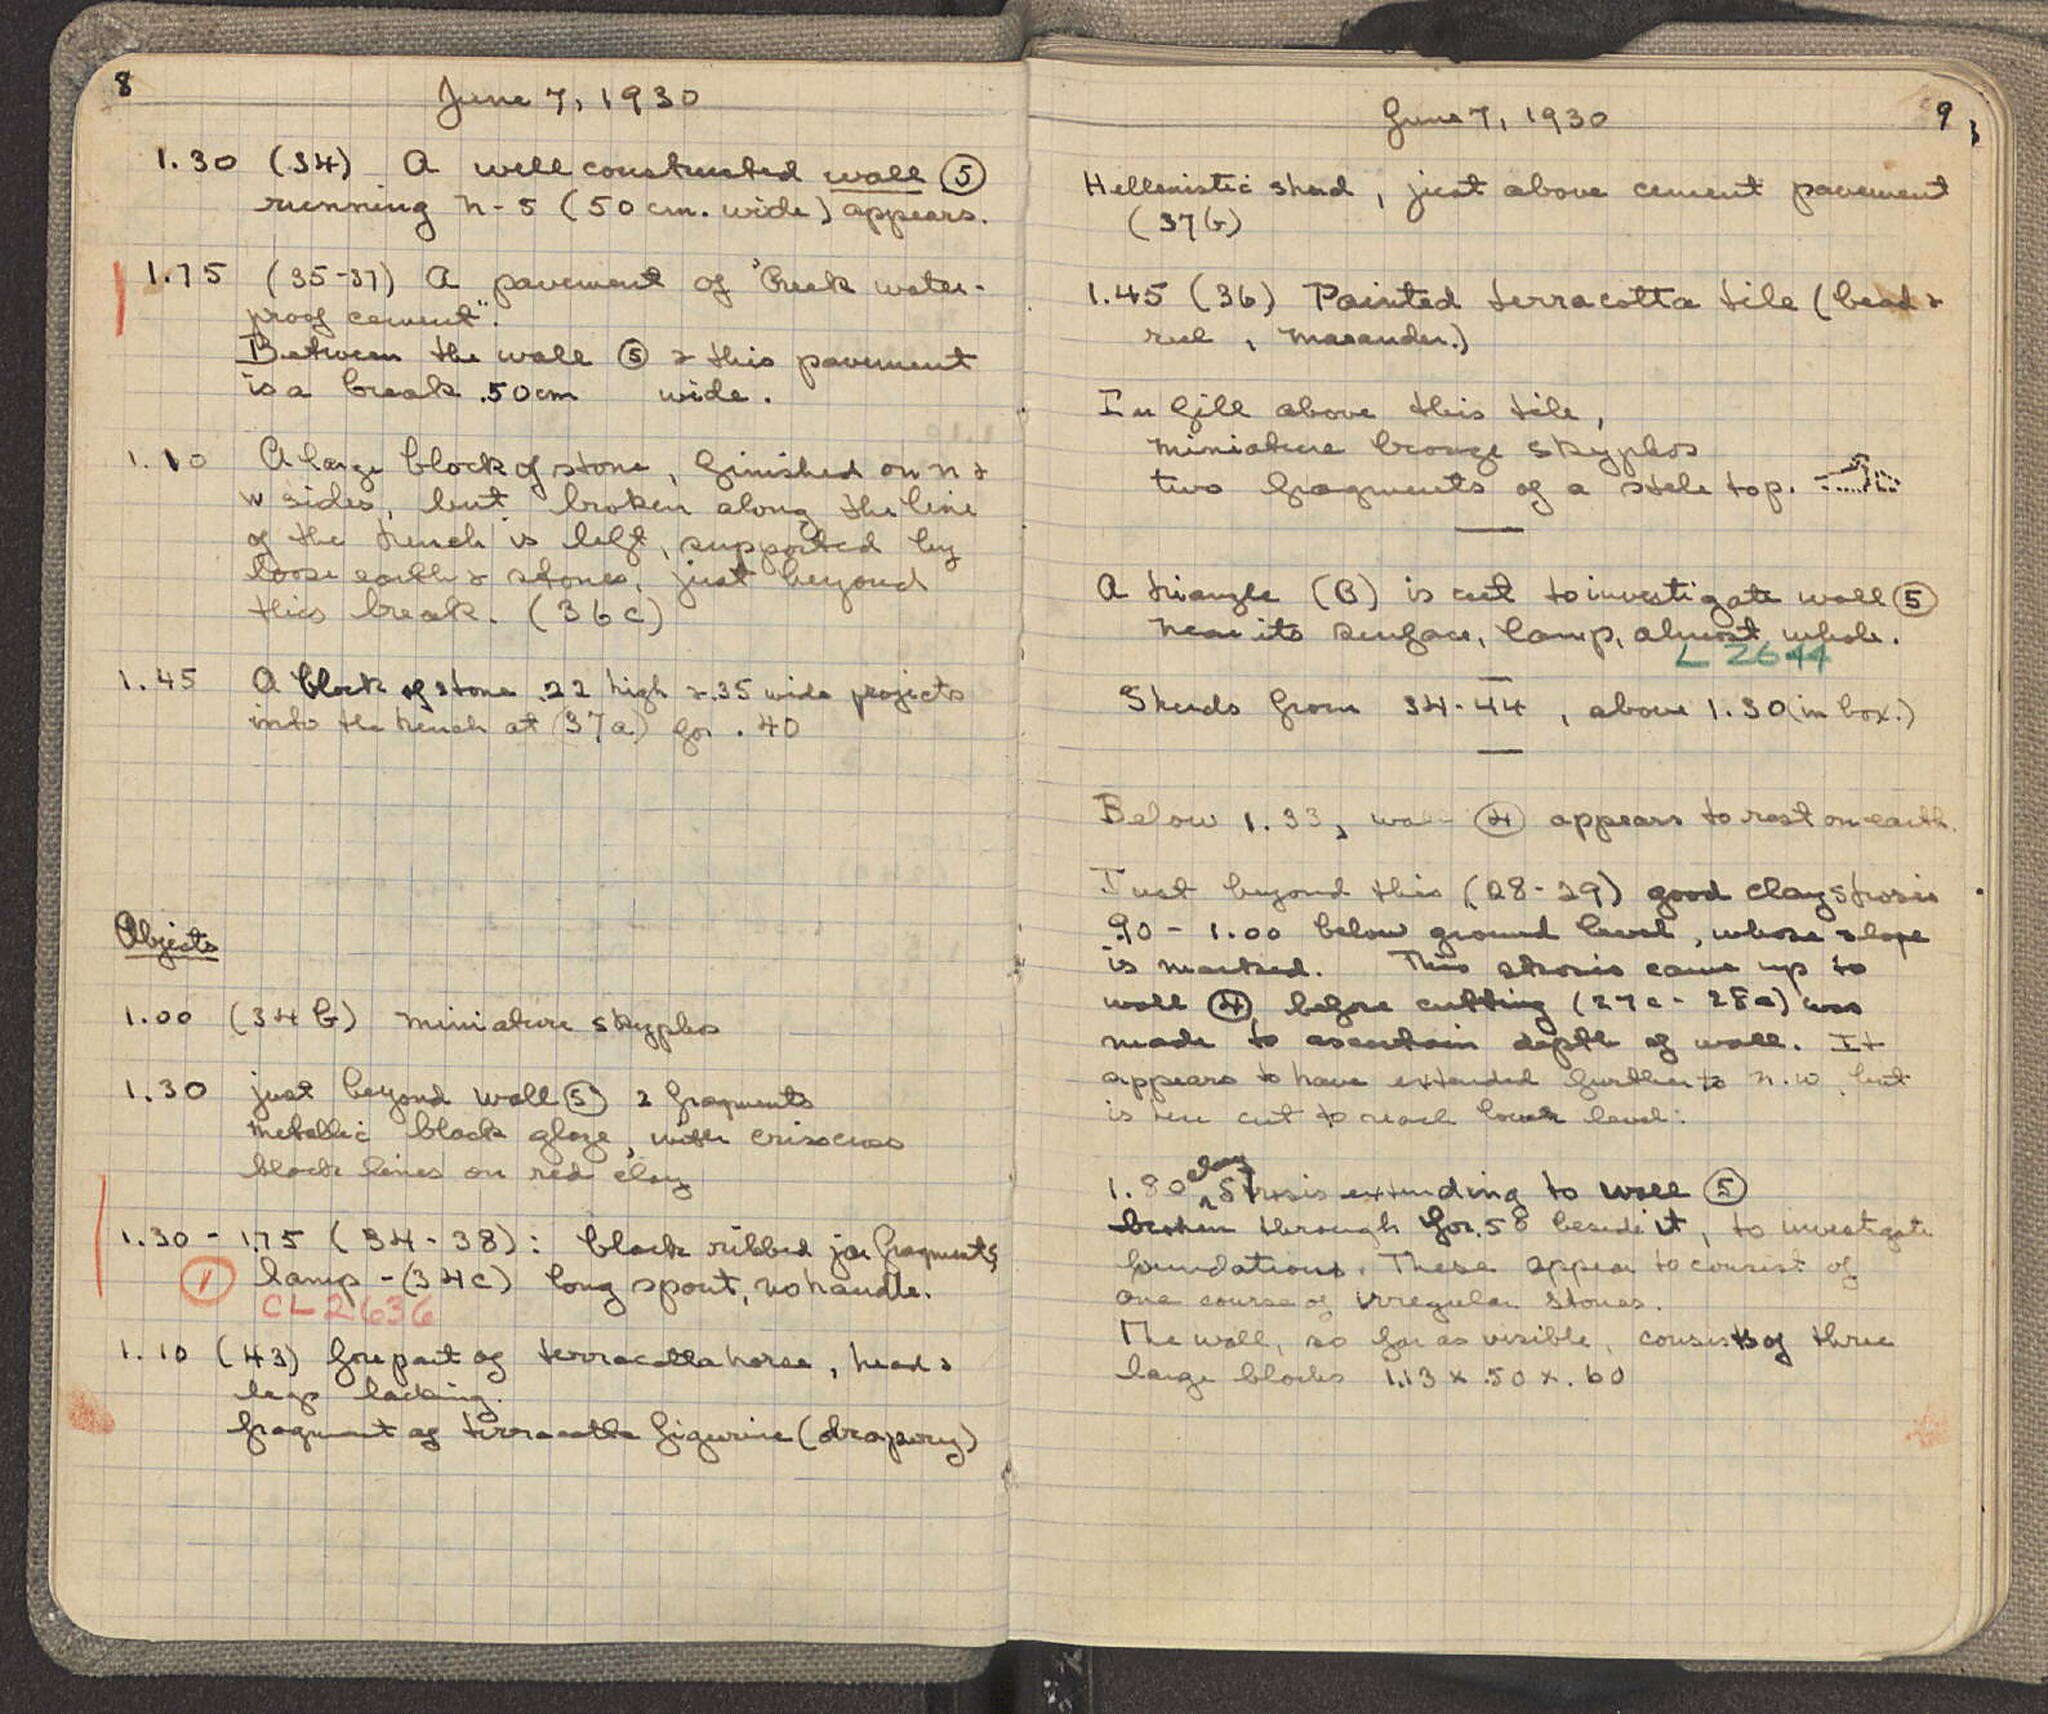 8
June 7, 1930
1.30 (34) A well constructed wall ⑤
running N-S (50 cm. wide) appears.
1.75 (35-37) A pavement of "Greek water-
proof cement".
Between the wall ⑤ & this pavement
is a break .50cm wide.
1.10 A large block of stone, finished on N &
W sides, but broken along the line
of the trench is left, supported by
loose earth & stones, just beyond
this break. (36c)
1.45 A block of stone .22 high & .35 wide projects
into the trench at (37a) for .40
Objects
1.00 (34b) miniature skyphos
1.30 just beyond wall ⑤ 2 fragments
metallic black glaze, with crisscross
black lines on red clay
1.30 - 1.75 (34-38): black ribbed jar fragments
① lamp - (34c) long spout, no handle.
CL 2636
1.10 (43) forepart of terracotta horse, head &
legs lacking.
fragment of terracotta figurine (drapery)
9
June 7, 1930
Hellenistic sherd, just above cement pavement
(37b)
1.45 (36) Painted terracotta tile (bead &
reel, maeander.)
In fill above this tile,
miniature bronze skyphos
two fragments of a stele top.
A triangle (B) is cut to investigate wall ⑤
near its surface, lamp, almost whole.
L 2644
Sherds from 34-44, above 1.30 (in box.)
Below 1.33, wall ④ appears to rest on earth.
Just beyond this (28-29) good clay strosis
.90 - 1.00 below ground level, whose slope
is marked. This strosis came up to
wall ④ before cutting (27c - 28a) was
made to ascertain depth of wall. It
appears to have extended further to N.W. but
is here cut to reach lower level.
1.80 clay strosis extending to wall ⑤
broken through for .58 beside it, to investigate
foundations. These appear to consist of
one course of irregular stones.
The wall, so far as visible, consists of three
large blocks 1.13 x .50 x .60